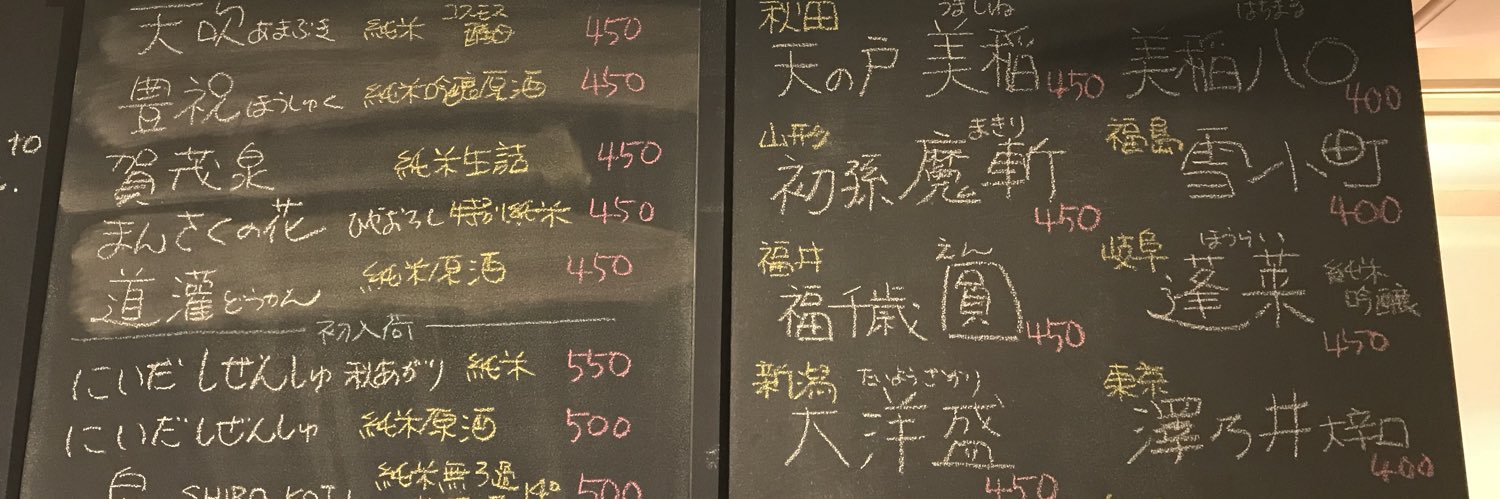 天吹 あまぶき 純米 コスモス酵母 450
豊祝 ほうしゅく 純米吟醸原酒 450
賀茂泉 純米生詰 450
まんさくの花 ひやおろし 特別純米 450
道灌 どうかん 純米原酒 450
初入荷
にいだしぜんしゅ 秋あがり 純米 550
にいだしぜんしゅ 純米原酒 500
純米無ろ過
SHIRO KOJI 500
秋田 うましね はちまる
天の戸 美稲 450 美稲八〇 400
山形 まきり 福島
初孫 魔斬 450 雪小町 400
福井 えん 岐阜 ほうらい
福千歳 圓 450 蓬莱 純米吟醸 450
新潟 たいようざかり 東京
大洋盛 450 澤乃井 大辛口 400